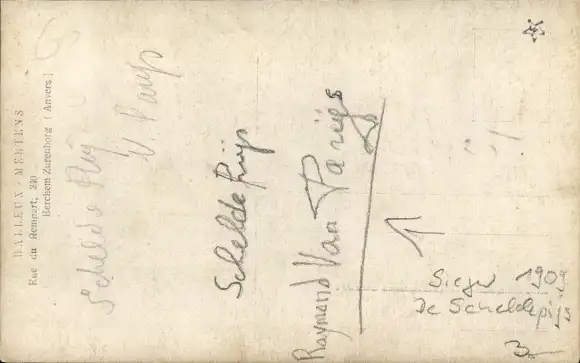 BALLEUX - MERTENS
Rue du Rempart, 240
Berchem Zurenborg (Anvers)
Schelde Prijs
V. Parys
Schelde Prijs
Raymond Van Parijs
Sieger 1909
De Scheldeprijs